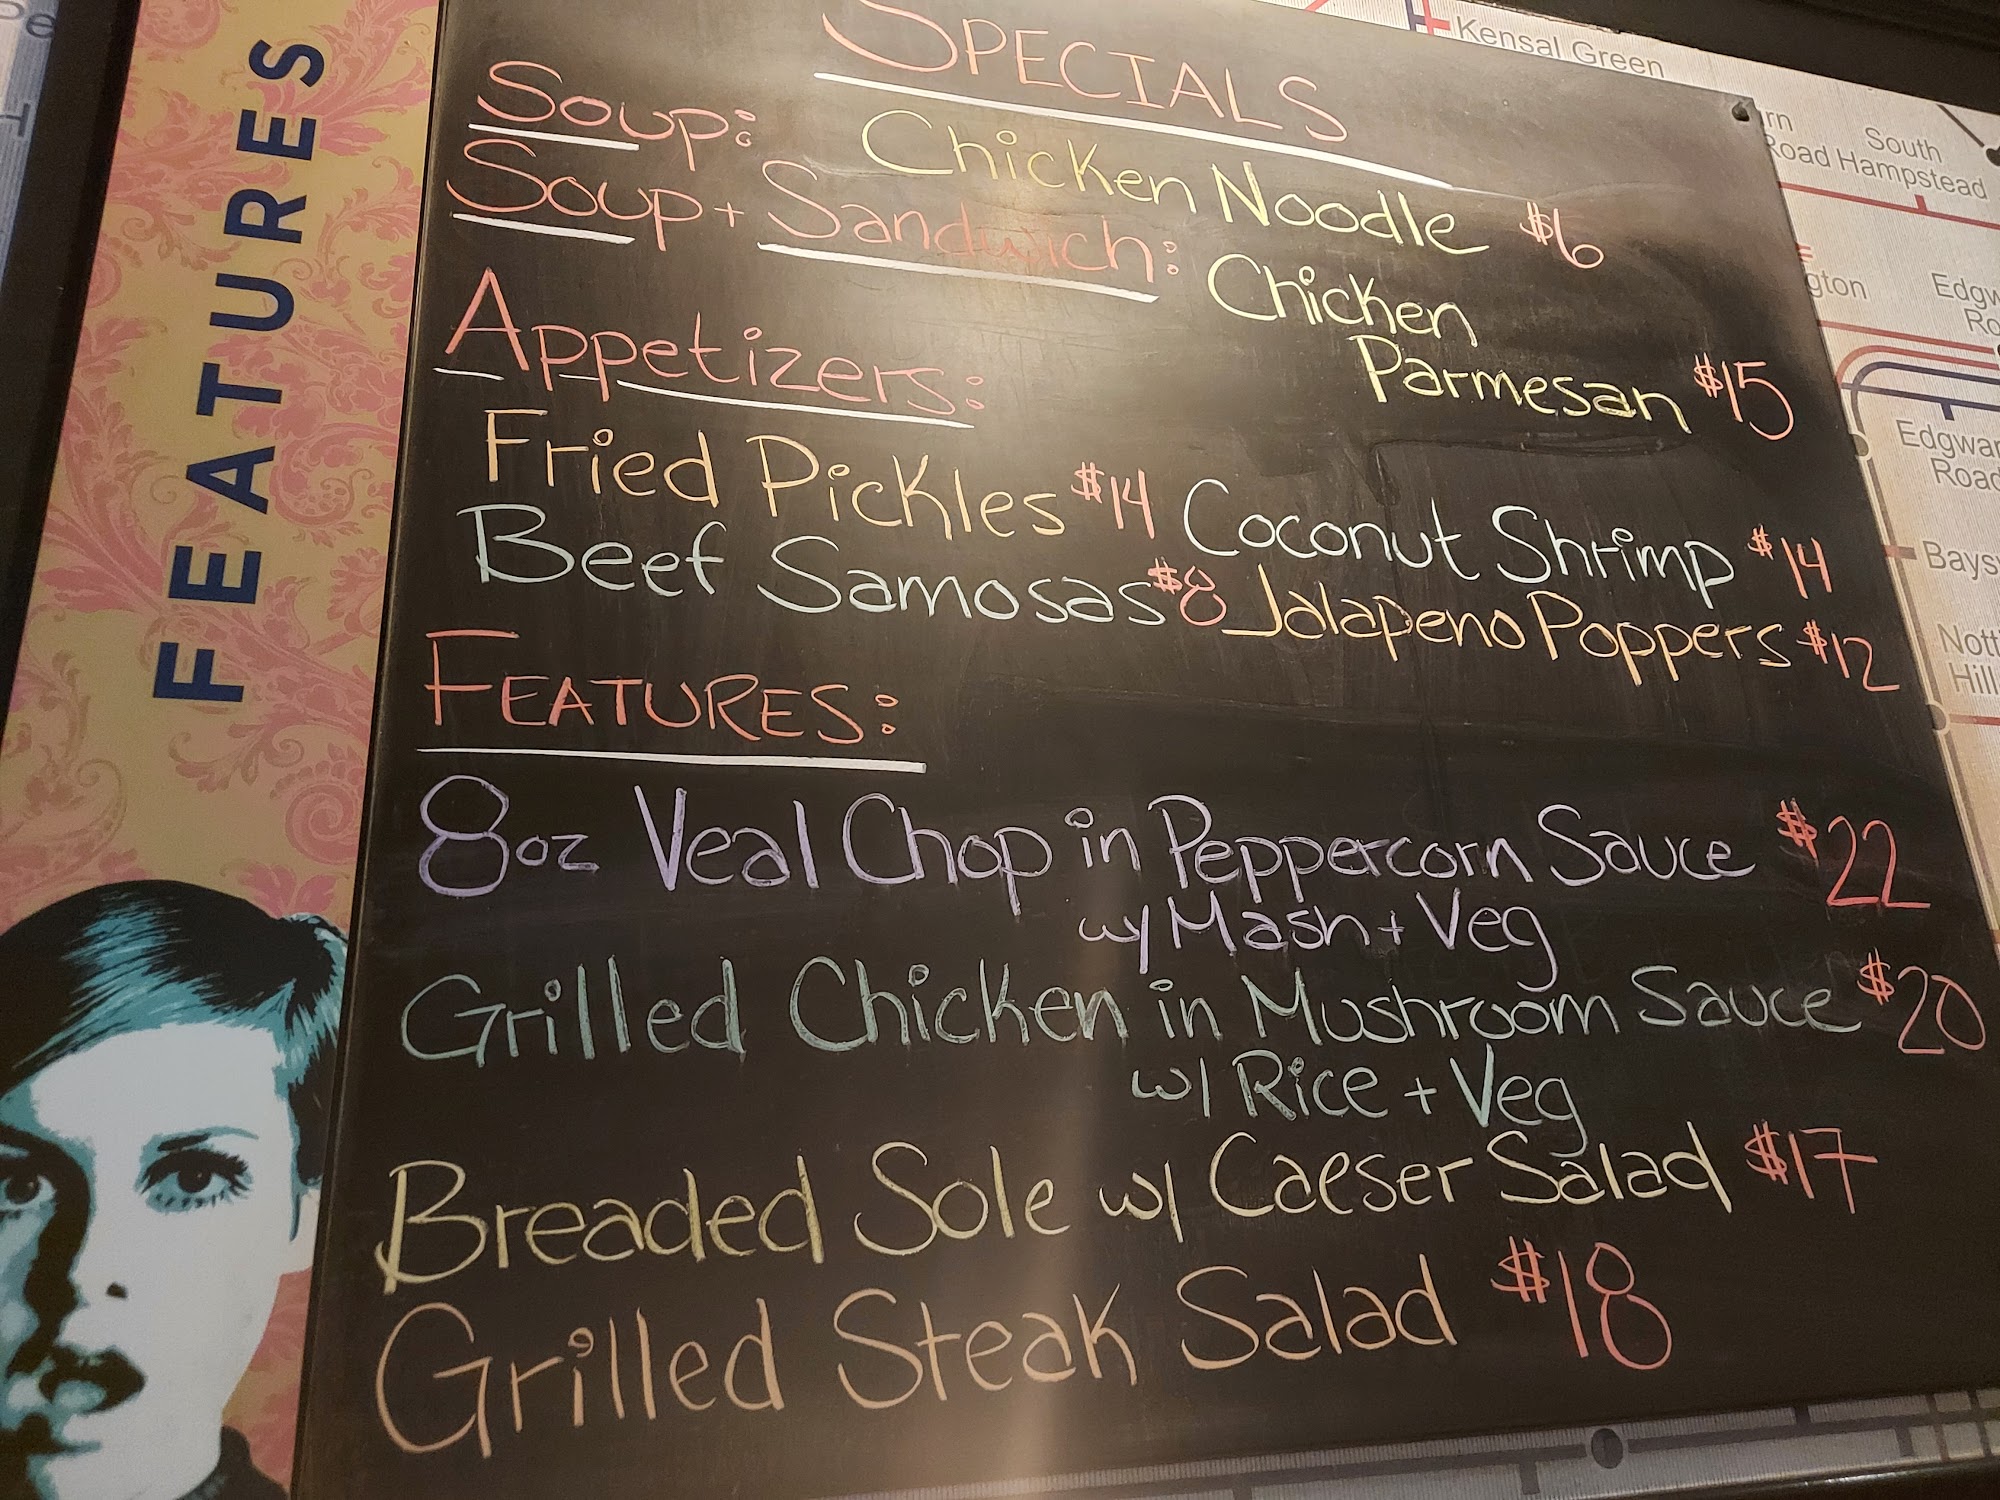 FEATURES
SPECIALS
Soup: Chicken Noodle $6
Soup + Sandwich: Chicken
Parmesan $15
Appetizers:
Fried Pickles $14 Coconut Shrimp $14
Beef Samosas $8 Jalapeno Poppers $12
FEATURES:
8oz Veal Chop in Peppercorn Sauce $22
w/ Mash + Veg
Grilled Chicken in Mushroom Sauce $20
w/ Rice + Veg
Breaded Sole w/ Caeser Salad $17
Grilled Steak Salad $18
Kensal Green
South
Road Hampstead
Edgwar
Road
Bays
Notti
Hill